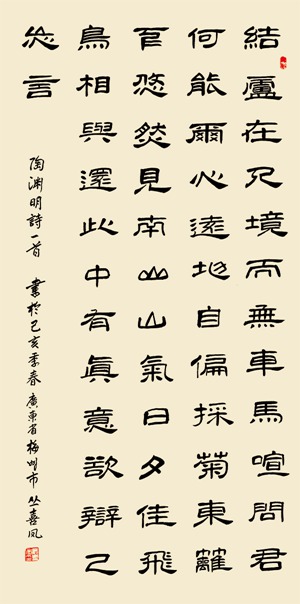 結廬在人境而無車馬喧問君
何能爾心遠地自偏採菊東籬
下悠然見南山山氣日夕佳飛
鳥相與還此中有眞意欲辯己
忘言
陶渊明詩一首 書於己亥季春廣東省梅州市 丛喜凤